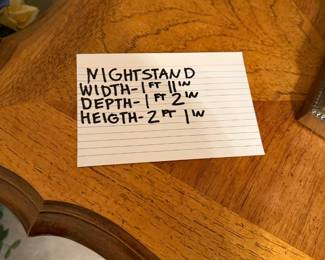 NIGHTSTAND
WIDTH-1FT 11IN
DEPTH-1FT 2IN
HEIGTH-2FT 1IN